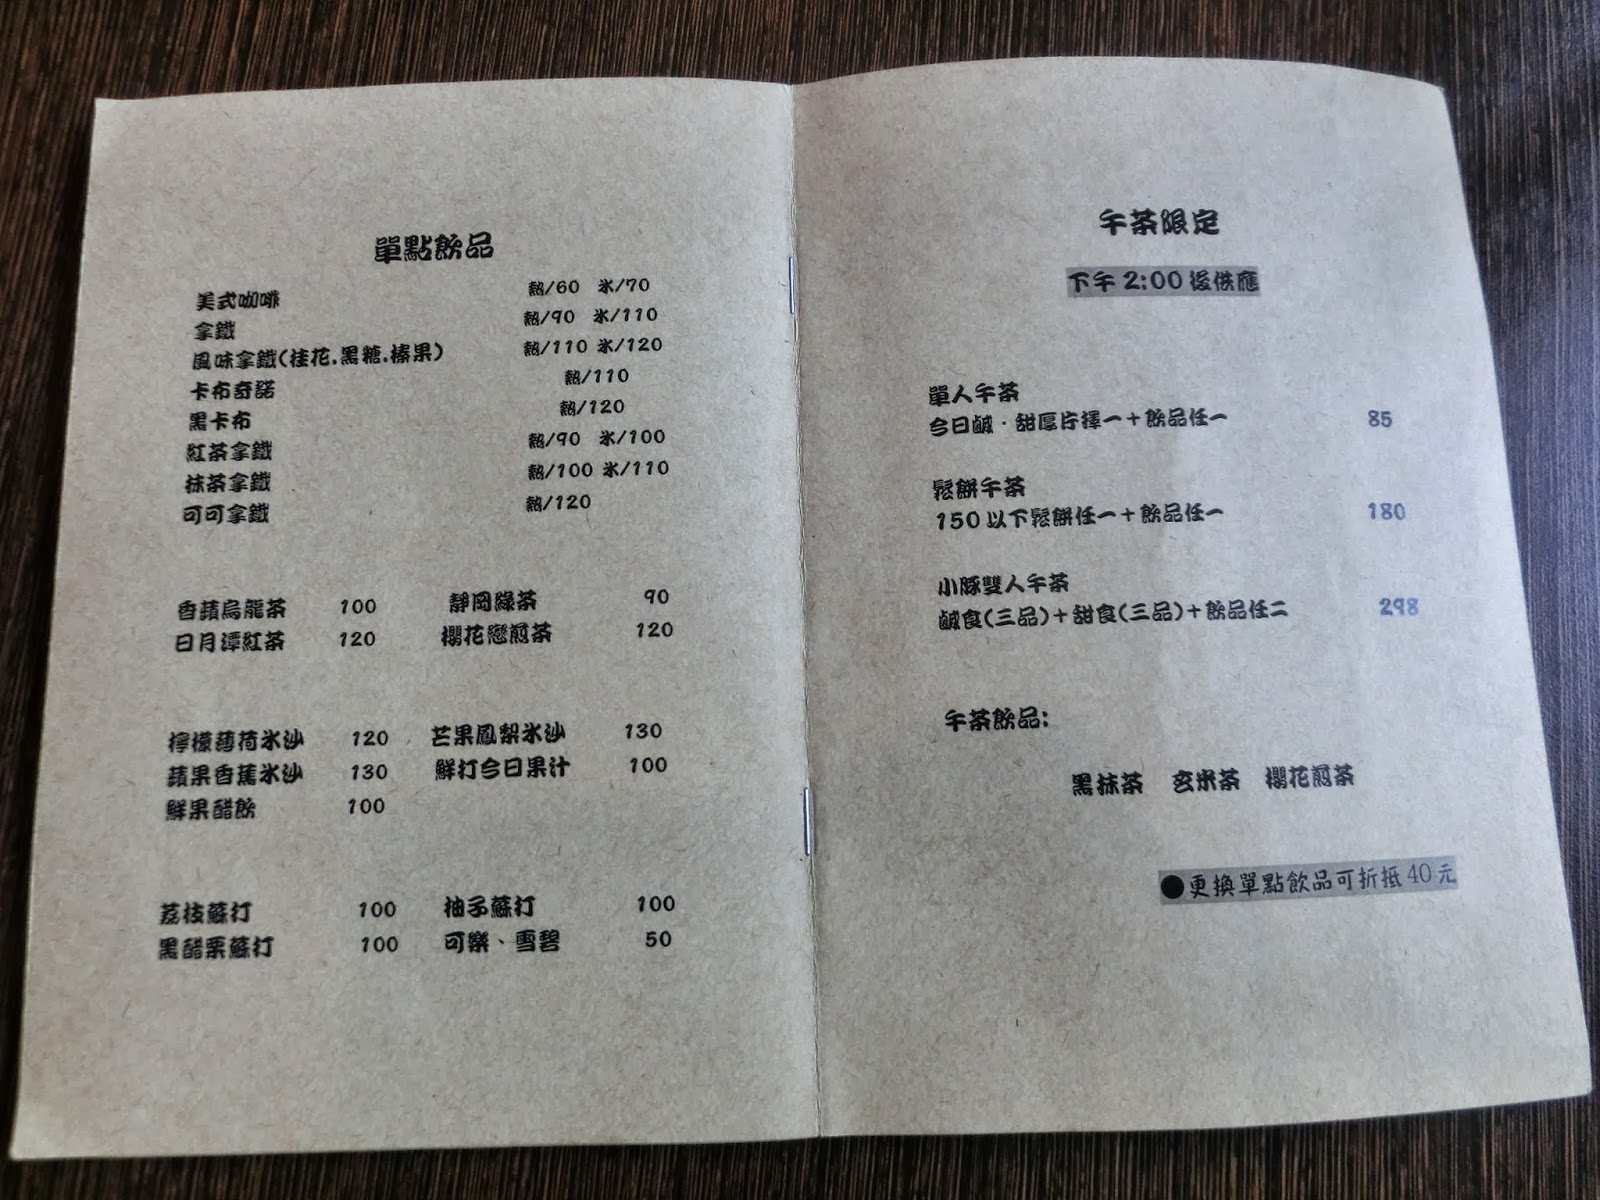 單點飲品
美式咖啡 熱/60 氷/70
拿鐵 熱/90 氷/110
風味拿鐵(桂花.黑糖.榛果) 熱/110 氷/120
卡布奇諾 熱/110
黑卡布 熱/120
紅茶拿鐵 熱/90 氷/100
抹茶拿鐵 熱/100 氷/110
可可拿鐵 熱/120
香蘋烏龍茶 100 靜岡綠茶 90
日月潭紅茶 120 櫻花戀煎茶 120
檸檬薄荷氷沙 120 芒果鳳梨氷沙 130
蘋果香蕉氷沙 130 鮮打今日果汁 100
鮮果醋飲 100
荔枝蘇打 100 柚子蘇打 100
黑醋栗蘇打 100 可樂、雪碧 50
午茶限定
下午 2:00 後供應
單人午茶
今日鹹·甜厚片擇一+飲品任一 85
鬆餅午茶
150 以下鬆餅任一+飲品任一 180
小豚雙人午茶
鹹食(三品)+甜食(三品)+飲品任二 298
午茶飲品:
黑抹茶 玄米茶 櫻花煎茶
●更換單點飲品可折抵 40 元